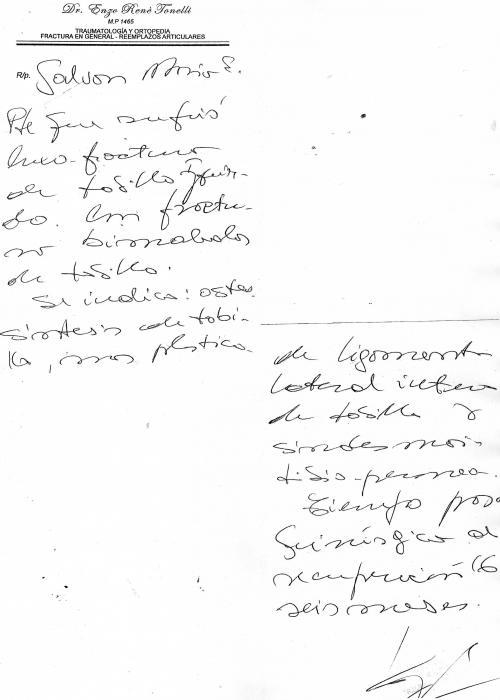 Dr. Enzo Renè Tonelli
M.P 1465
TRAUMATOLOGÍA Y ORTOPEDIA
FRACTURA EN GENERAL - REEMPLAZOS ARTICULARES
R/p.
Pte que sufrió
luxo-fractura
de tobillo izquier-
do. Con fractu-
ra bimaleolar
de tobillo.
Se indica: osteo
síntesis de tobi-
llo, mas plastica
de ligamento
lateral interno
de tobillo y
sindesmosis
tibio-peronea.
Tiempo pos
quirúrgico de
recuperación (6
seis meses.